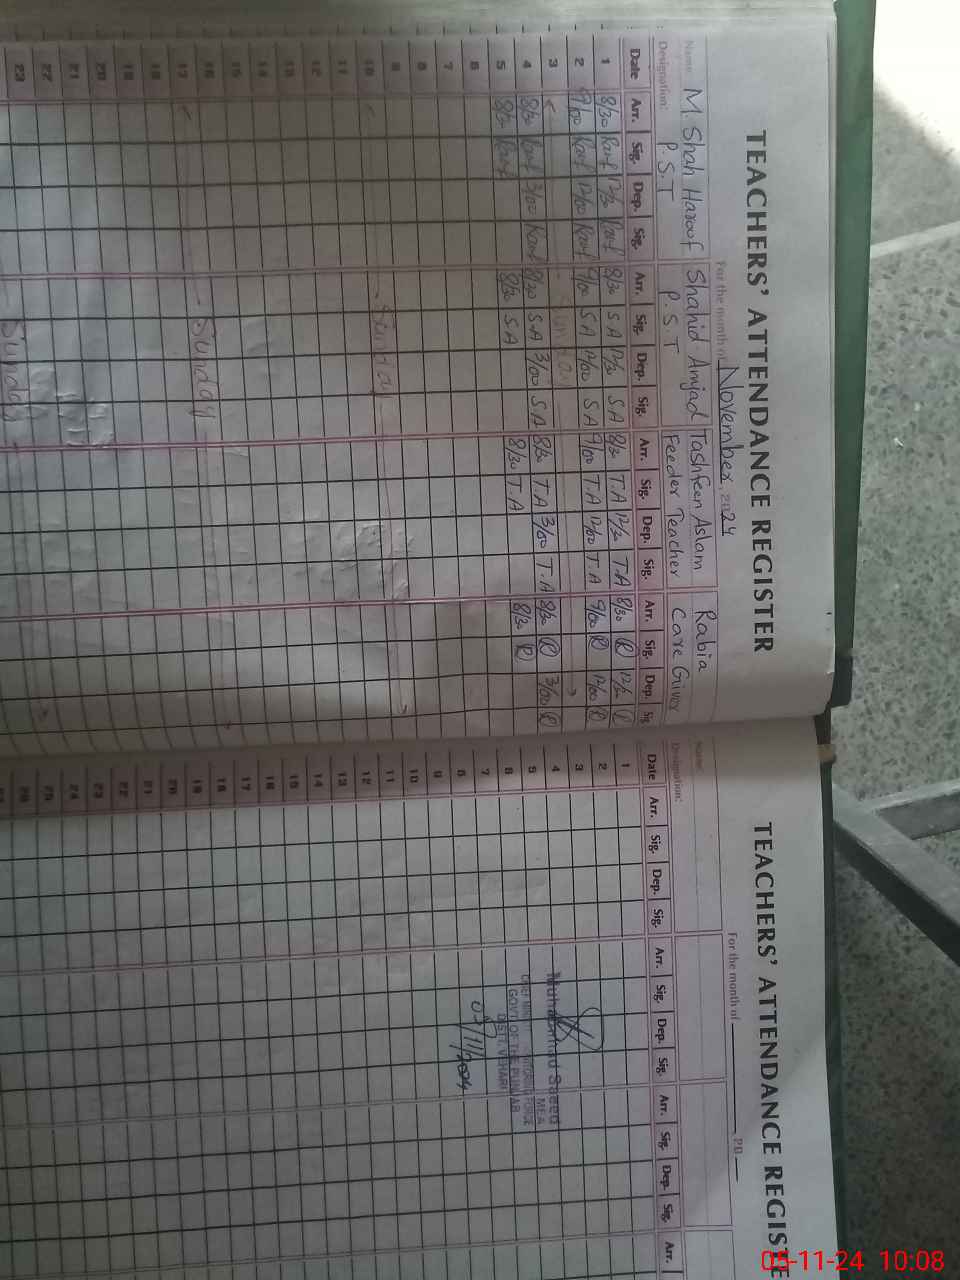 TEACHERS' ATTENDANCE REGISTER
For the month of November 2024
Name M. Shah Harouf Shahid Amjad Tashfeen Aslam Rabia
Designation: P.S.T P.S.T Feeder Teacher Care Giver
Date Arr. Sig. Dep. Sig. Arr. Sig. Dep. Sig. Arr. Sig. Dep. Sig. Arr. Sig. Dep. Sig
1 8/30 Rauf 12/30 Rauf 8/30 S A 12/30 S A 8/30 T.A 12/30 T.A 8/30 R 12/30 R
2 9/00 Rauf 12/00 Rauf 9/00 S A 12/00 S A 9/00 T.A 12/00 T.A 9/00 R 12/00 R
3 Sunday
4 8/30 Rauf 3/00 Rauf 8/30 S.A 3/00 S A 8/30 T.A 3/00 T.A 8/30 R 3/00 R
5 8/30 Rauf 8/30 S A 8/30 T.A 8/30 R
6
7
8
9
10 Sunday
11
12
13
14
15
16
17 Sunday
18
19
20
21
22
23
Sunday
TEACHERS' ATTENDANCE REGISTE
For the month of 20
Name
Designation:
Date Arr. Sig. Dep. Sig. Arr. Sig. Dep. Sig. Arr. Sig. Dep. Sig. Arr.
1
2
3
4
5
6
7
8
9
10
11
12
13
14
15
16
17
18
19
20
21
22
23
24
25
26
27
Muhammad Saeed
MEA
CHIEF MINISTER MONITORING FORCE
GOVT OF THE PUNJAB
DISTT. VEHARI
05-11-24 10:08